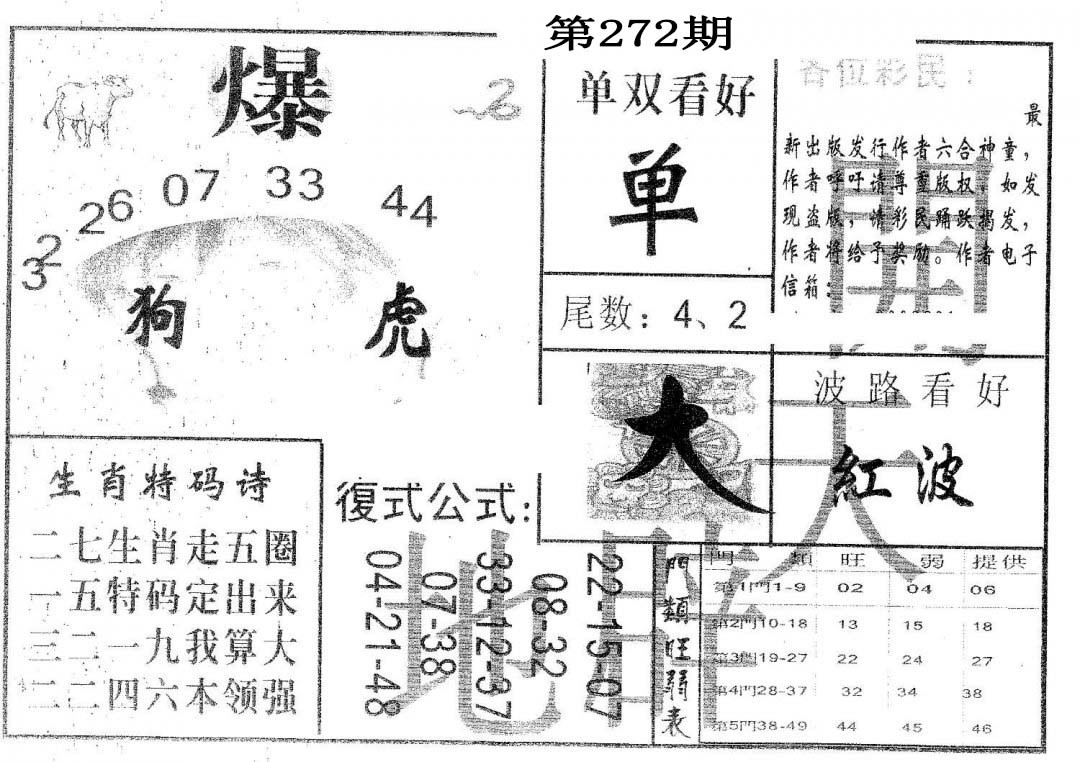 第272期
爆
32
26
07
33
44
狗
虎
单双看好
单
尾数：4、2
各位彩民：
最
新出版发行作者六合神童，
作者呼吁请尊重版权，如发
现盗版，情彩民踊跃揭发，
作者将给予奖励。作者电子
信箱：
大
波路看好
紅波
生肖特码诗
二七生肖走五圈
一五特码定出来
三二一九我算大
二二四六本领强
復式公式：
04-21-48
07-38
33-12-37
08-32
22-15-07
門類旺弱表
門 類 旺 弱 提供
第1門1-9 02 04 06
第2門10-18 13 15 18
第3門19-27 22 24 27
第4門28-37 32 34 38
第5門38-49 44 45 46